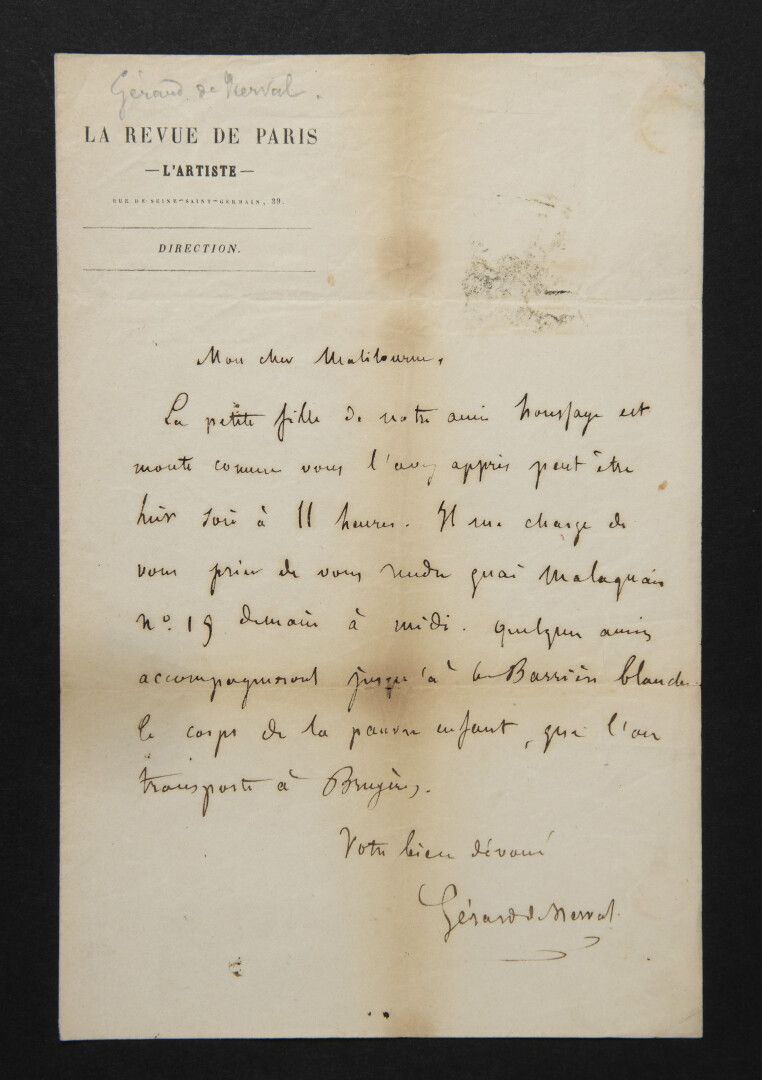 Gérard de Nerval.
LA REVUE DE PARIS
— L'ARTISTE —
RUE DE SEINE-SAINT-GERMAIN, 39.
DIRECTION.
Mon cher
La petite fille de notre ami houssaye est
morte comme vous l'avez appris peut être
hier soir à 11 heures. Il me charge de
vous prier de vous rendre quai Malaquais
n° 19 demain à midi. Quelques amis
accompagneront jusqu'à la Barrière blanche
le corps de la pauvre enfant, que l'on
transporte à Bruyères.
Votre bien dévoué
Gérard de Nerval